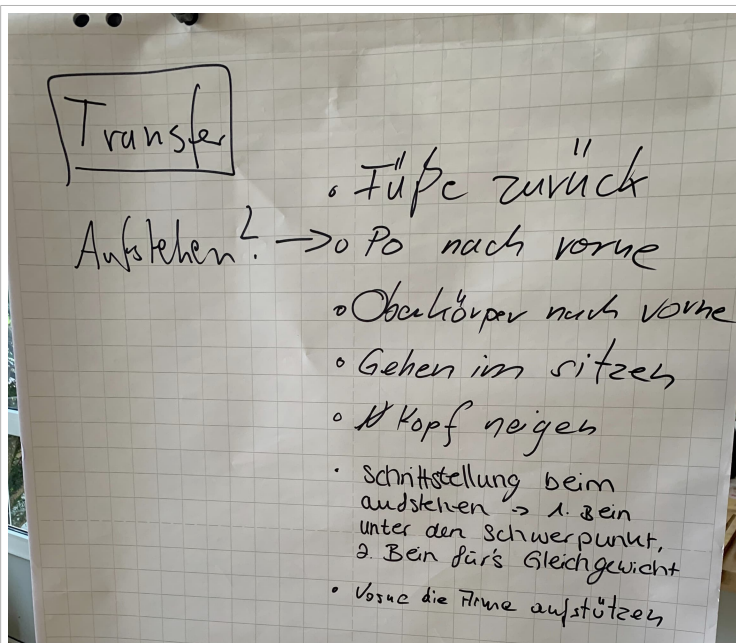 Transfer
Aufstehen? → • Füße zurück
• Po nach vorne
• Oberkörper nach vorne
• Gehen im sitzen
• Kopf neigen
• Schrittstellung beim
audstehen → 1. Bein
unter den Schwerpunkt,
2. Bein für's Gleichgewicht
• Vorne die Arme aufstützen